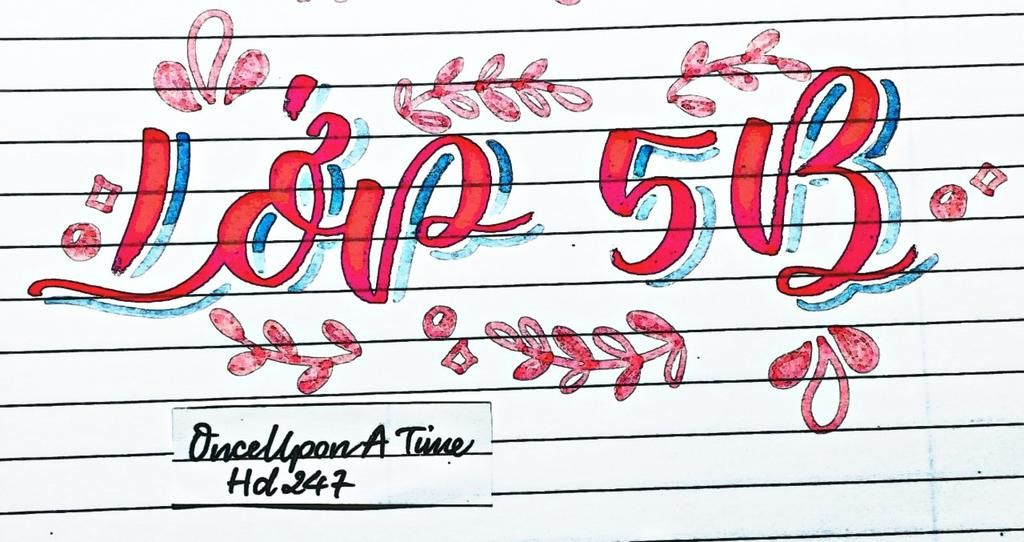 Lớp 5B
OnceUpon A Time
Hd247